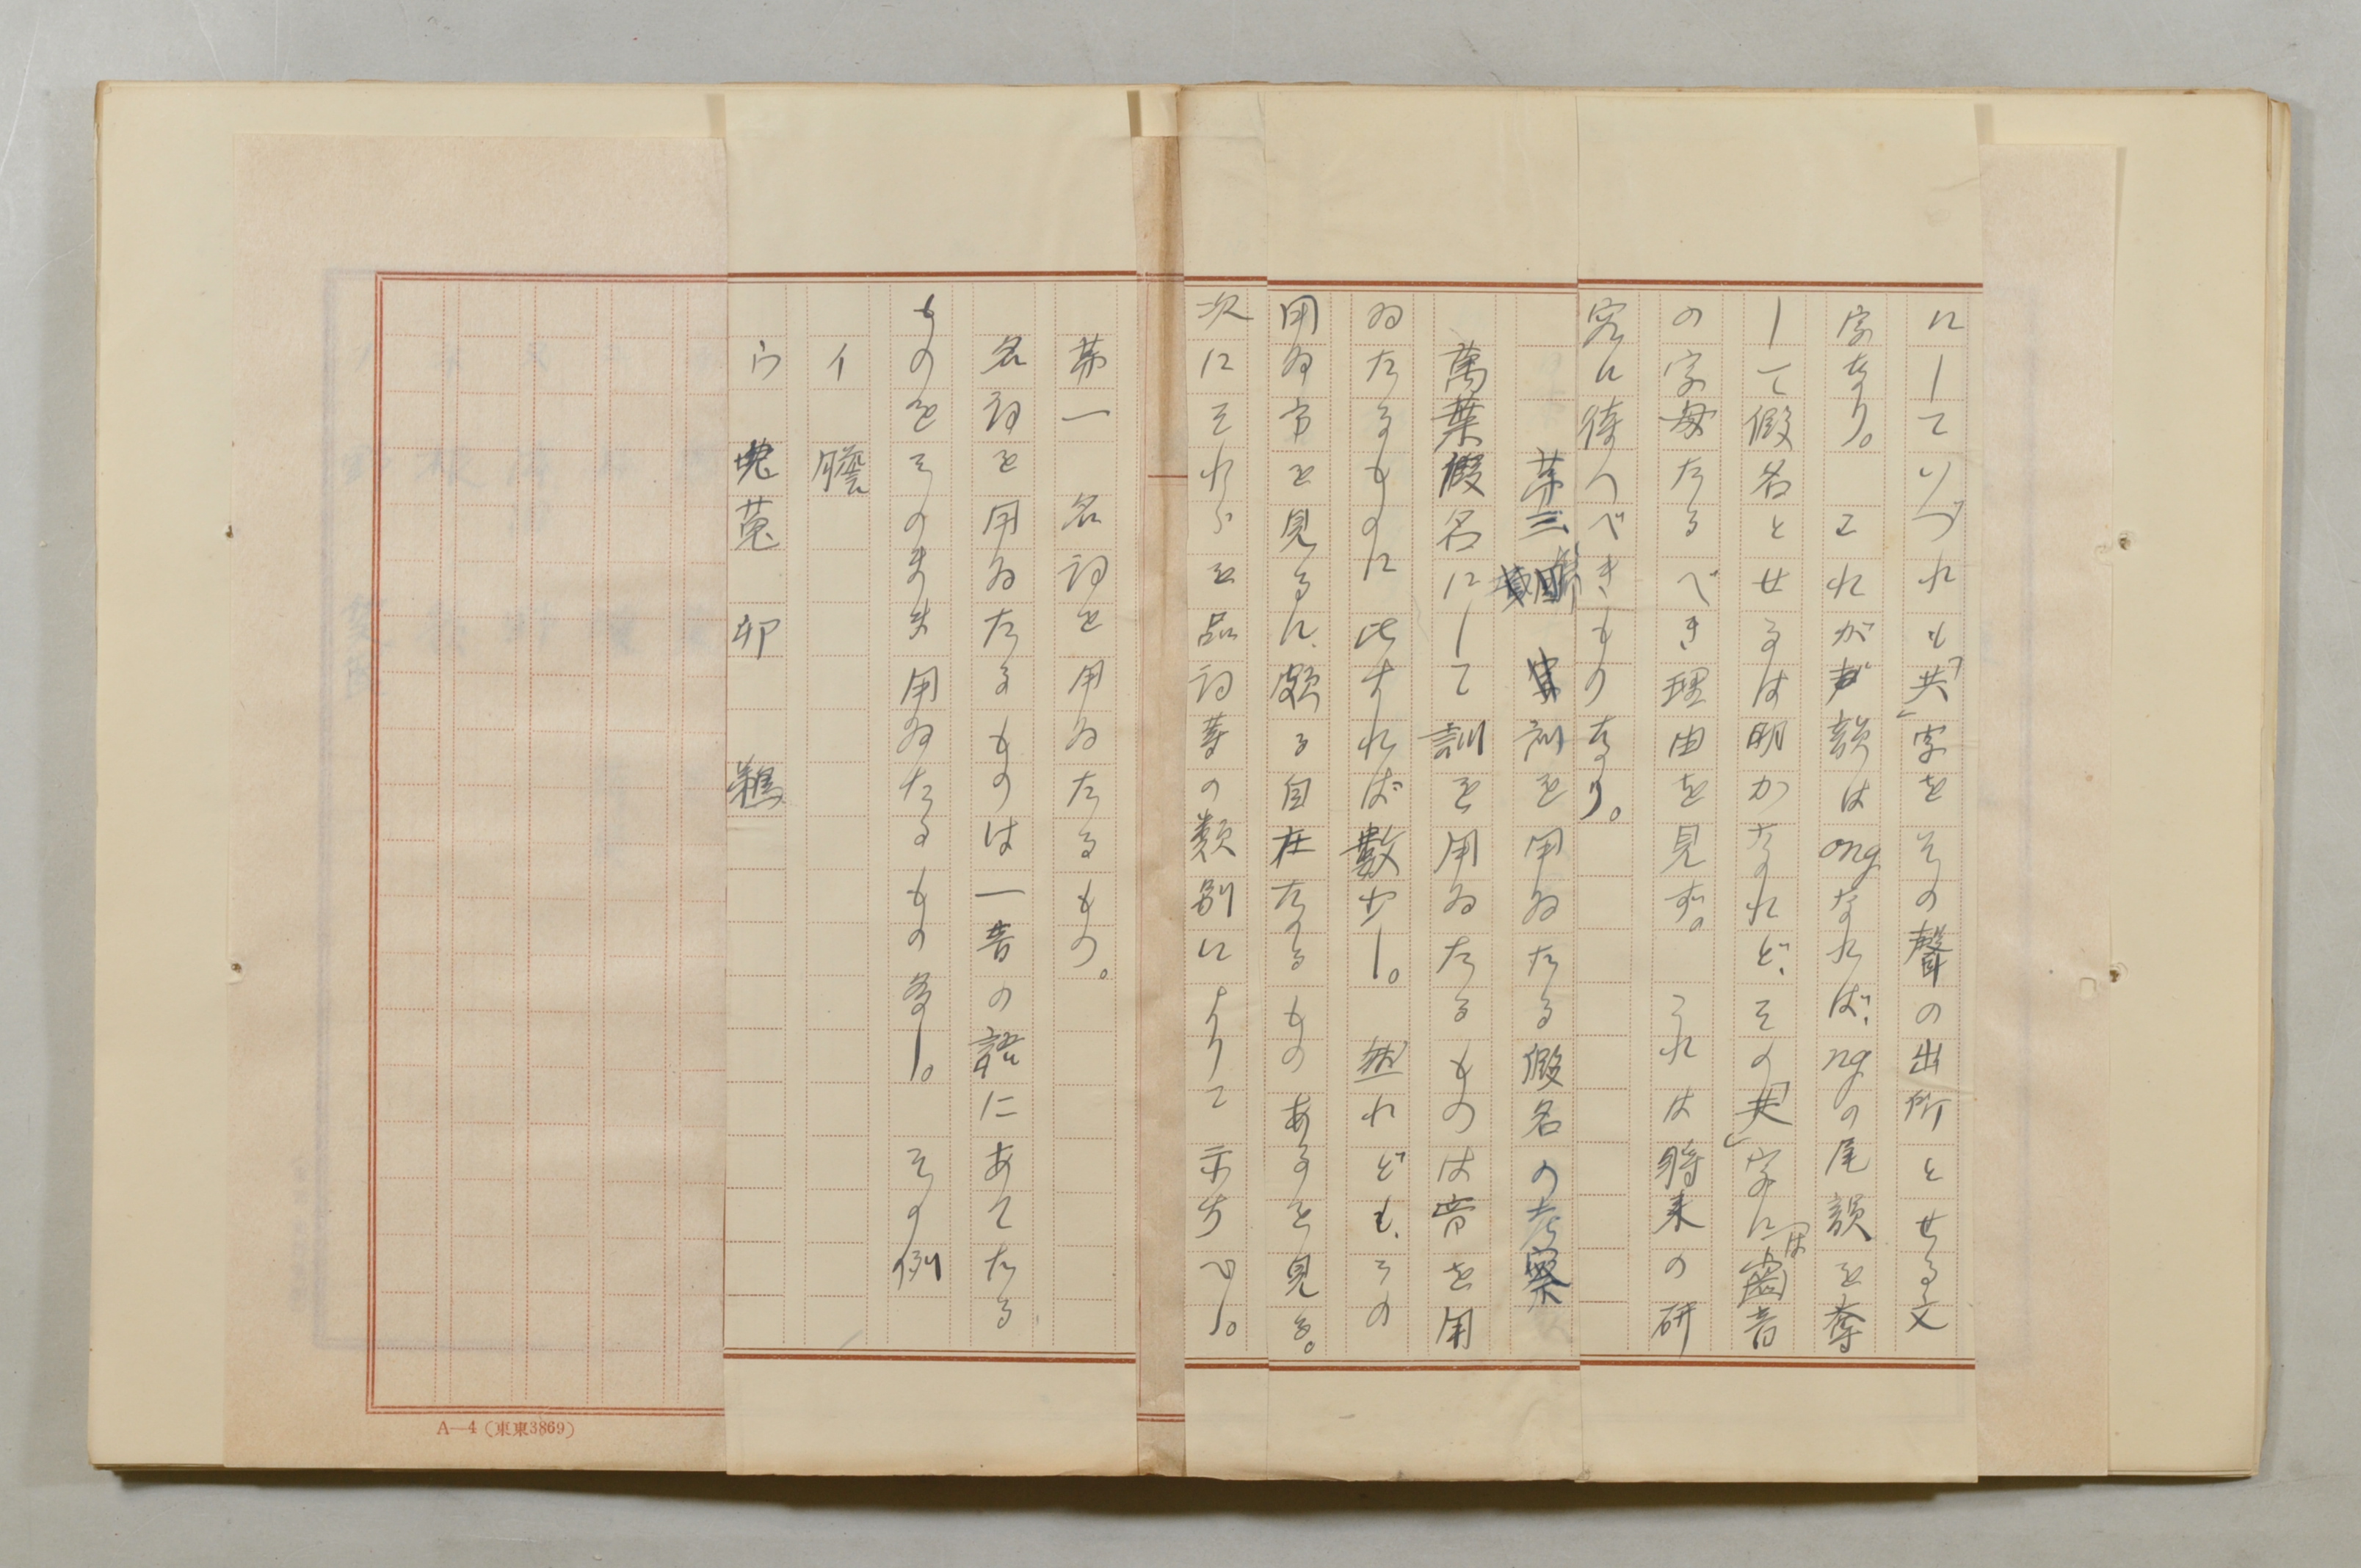 にしていづれも「共」字をその聲の出所とせる文
字なり。これが韻はongなれば、ngの尾韻を奪
して假名とせるは明かなれど、その「共」字には齒音
の字母たるべき理由を見ず。これは將來の研
究に待つべきものなり。
第三 訓を用ゐたる假名の考察
萬葉假名にして訓を用ゐたるものは音を用
ゐたるものに比すれば數少し。然れども、その
用ゐ方を見るに、頗る自在なるものあるを見る。
次にそれらを品詞等の類別によりて示すべし。
第一 名詞を用ゐたるもの。
名詞を用ゐたるものは一音の語にあてたる
ものをそのまま用ゐたるもの多し。その例
イ 膽
ウ 菟 卯
A—4(東東3869)